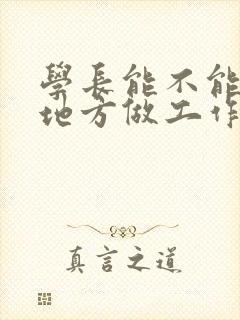 學長能不能
地方做工作
真言之道